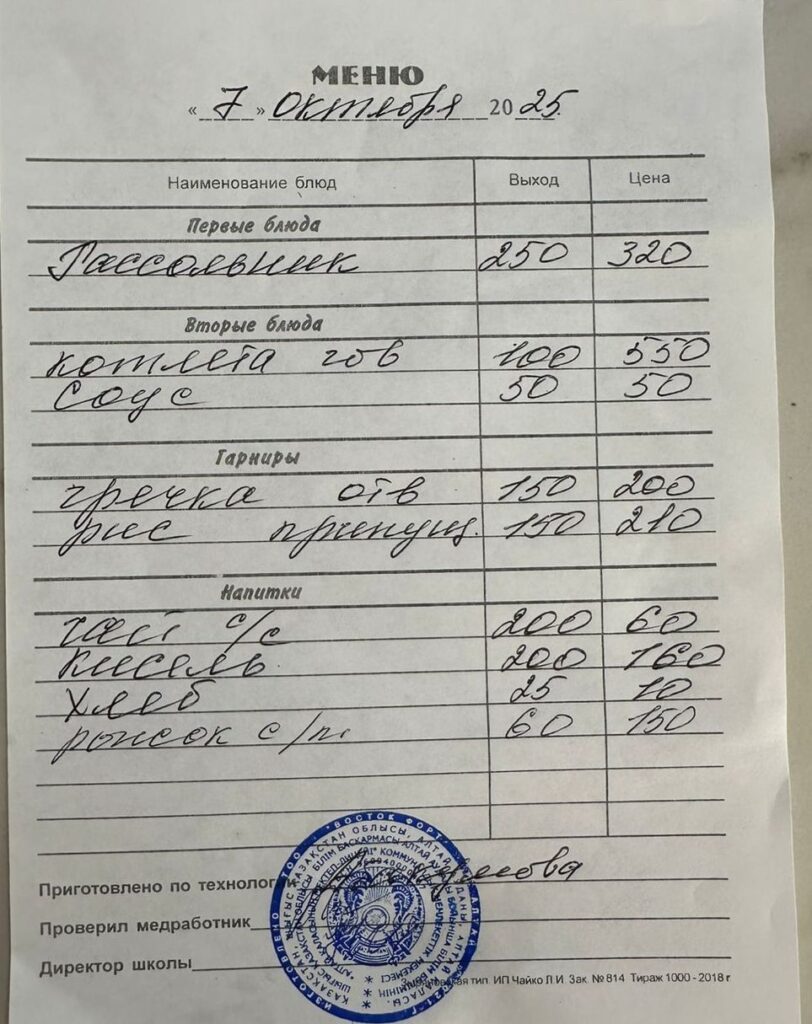 МЕНЮ
« 7 » Октября 2025.
Наименование блюд Выход Цена
Первые блюда
Рассольник 250 320
Вторые блюда
котлета гов 100 550
Соус 50 50
Гарниры
гречка отв 150 200
рис припущ. 150 210
Напитки
чай с/с 200 60
Кисель 200 160
Хлеб 25 10
рожок с/п. 60 150
Приготовлено по технологии
Проверил медработник
Директор школы
тип. ИП Чайко Л.И. Зак. № 814 Тираж 1000 - 2018 г
ИЗГОТОВЛЕНО ТОО "ВОСТОК
ШЫҒЫС ҚАЗАҚСТАН ОБЛЫСЫ, АЛТАЙ